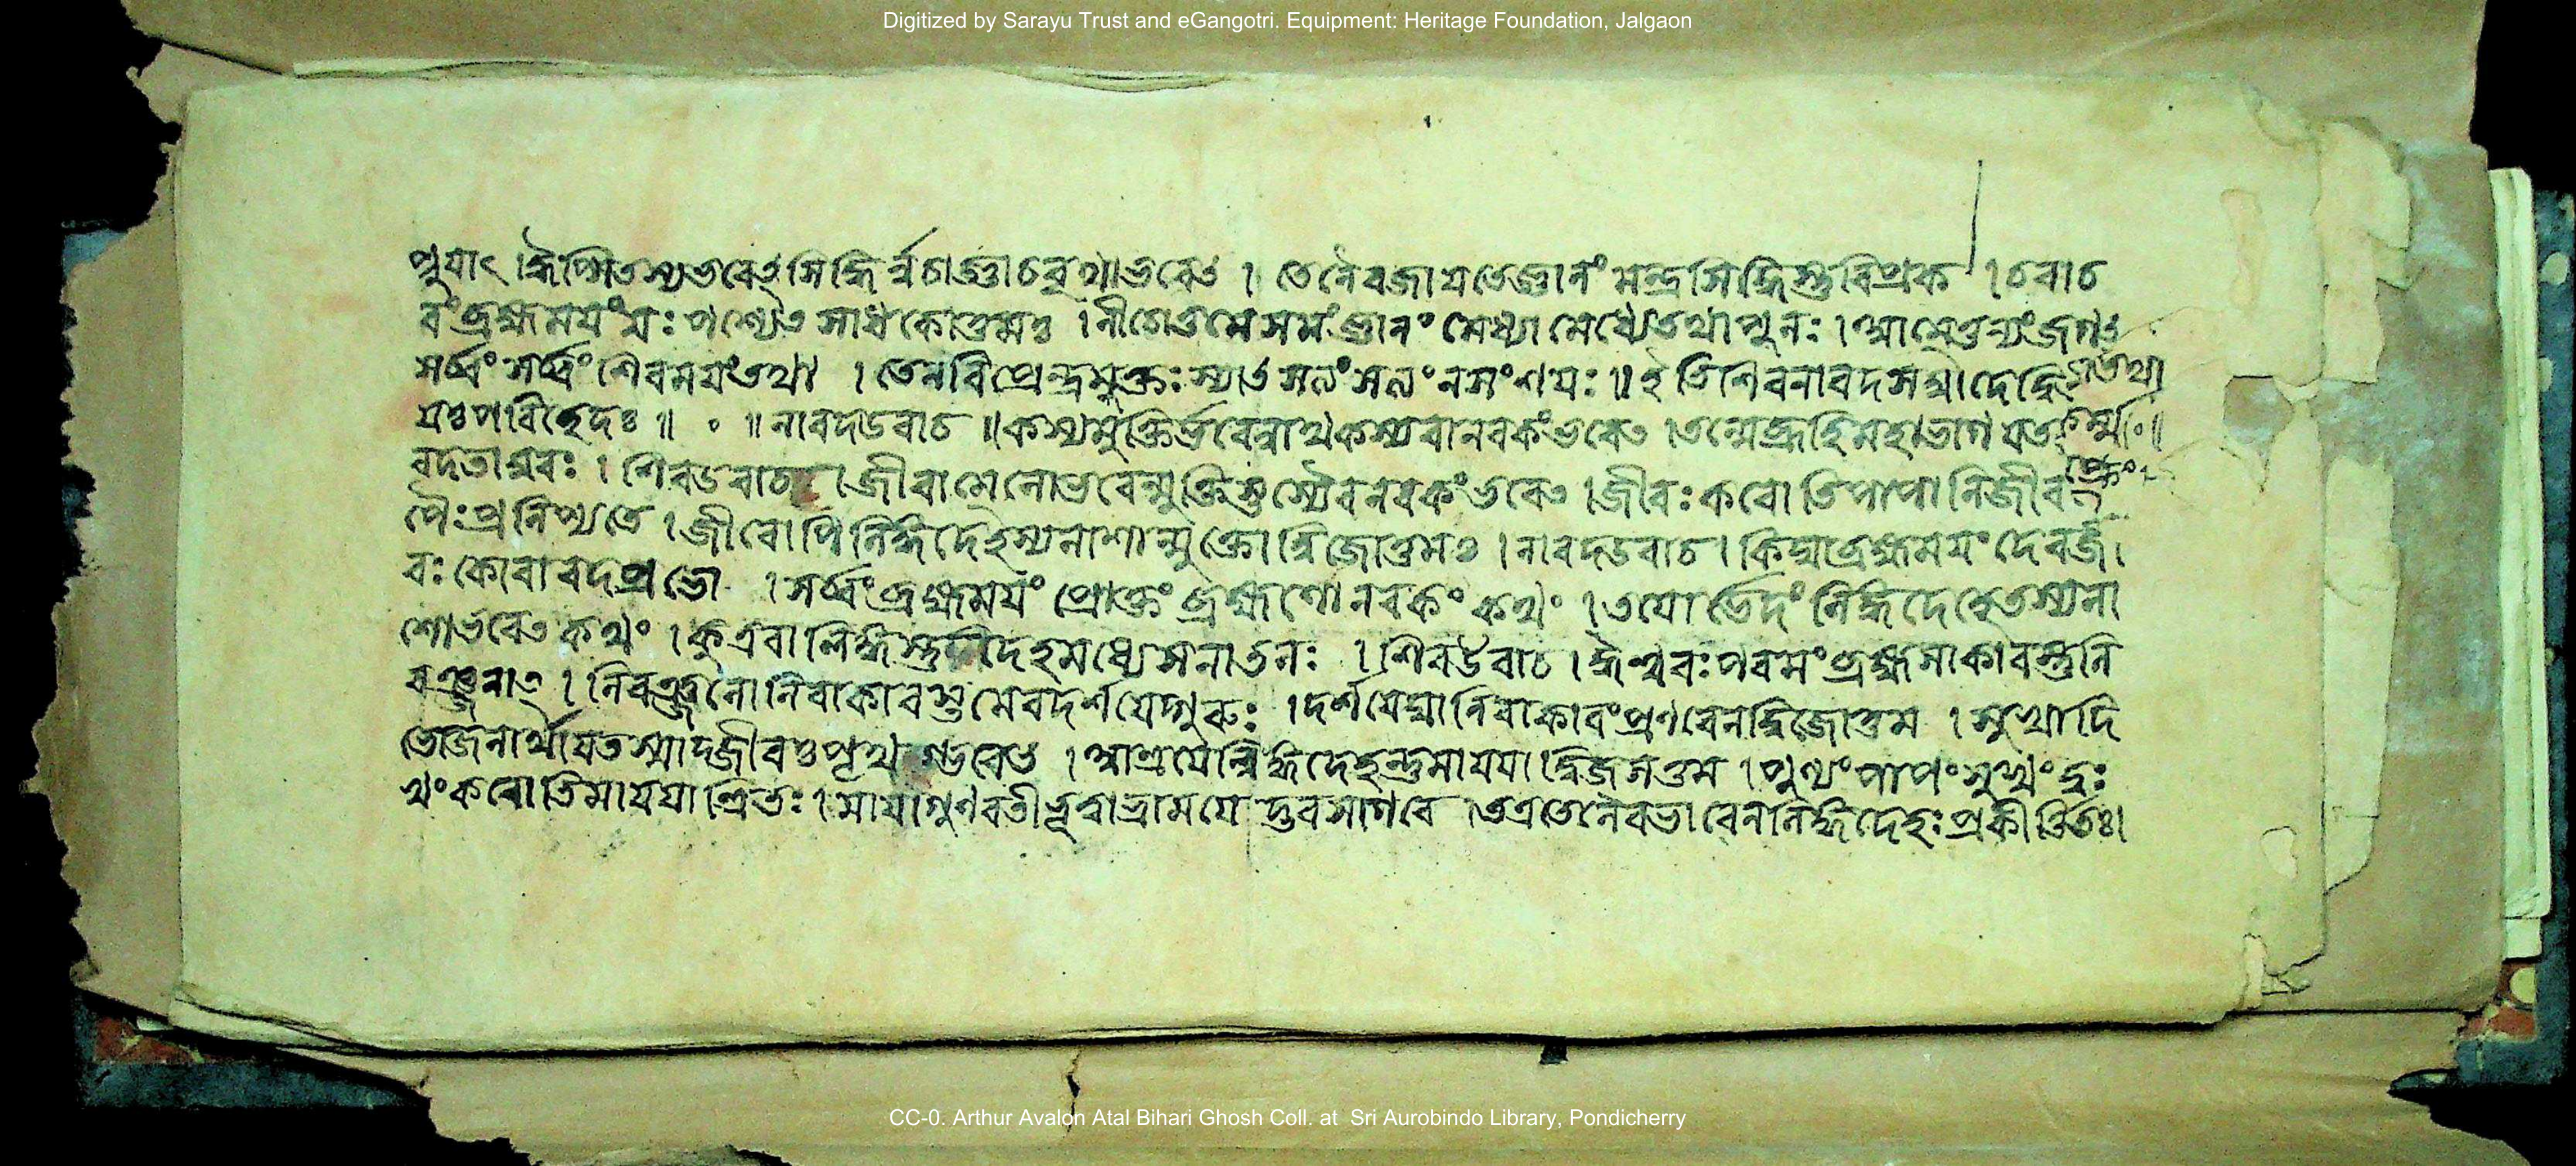 Digitized by Sarayu Trust and eGangotri. Equipment: Heritage Foundation, Jalgaon
প্নুযাৎ । তস্যভবেৎসিদ্ধি র্ন্নচান্নাচবৃথাভবেৎ । তেনৈবজাযতেজ্ঞানং মন্ত্রসিদ্ধিস্তুবিপ্রক । চবাচ
বংব্রহ্মমযংযঃ পশ্যেৎ সাধকোত্তমঃ । জ্ঞানং মেধ্যামেধ্যেতথাপুনঃ ।
সর্ব্বংসর্ব্বং শিবমযংতথা । তেনবিপ্রেন্দ্রমুক্তঃ স্যাৎ সত্যংসত্যংনসংশযঃ ॥ ইতিশিবনাবদসম্বাদে তথা
যঃপবিছেদঃ ॥ ॰ ॥ নাবদউবাচ ॥ কস্যমুক্তির্ভবেন্নাথকস্যবানবকংভবেৎ । তন্মেব্রূহিমহাভাগ
বদতাম্বরঃ । শিবউবাচ । জীবাত্মনোভবেন্মুক্তিস্তস্যৈবনবকংভবেৎ । জীবঃকবোতিপাপানিজীব
পৈঃপ্রনিপ্যতে । জীবোপিলিঙ্গদেহস্যনাশান্মুক্তোদ্বিজোত্তমঃ । নাবদউবাচ । কিম্বাব্রহ্মমযংদেবজী
বঃ কোবাবদপ্রভো । সর্ব্বংব্রহ্মমযং প্রোক্তং ব্রহ্মণোনবকংকথং । তযোর্ভেদং লিঙ্গদেহেতস্যনা
শোর্ভবেৎকথং । কুত্রবালিঙ্গস্তু দেহমধ্যেসনাতনঃ । শিবউবাচ । ঈশ্ববঃপবমংব্রহ্মসাকাবস্তুনি
বঞ্জনাৎ । নিবঞ্জনোনিবাকাবস্তুমেবদর্শযেদ্গুরুঃ । দর্শযেদ্বানিবাকাবংপ্রণবেনদ্বিজোত্তম । সুখাদি
ভোজনার্থাযতস্মাদ্জীবঃপৃথ ভবেৎ । আশ্রযেল্লিঙ্গদেহন্তুমাযযাদ্বিজসত্তম । পুণ্যংপাপংসুখংদুঃ
খংকবোতিমাযযান্বিতঃ । মাযাগুণবতীভূত্বাভ্রামযেদ্ভবসাগবে । তত্রতেনৈবভাবেনলিঙ্গদেহঃপ্রকীর্ত্তিতঃ।
CC-0. Arthur Avalon Atal Bihari Ghosh Coll. at Sri Aurobindo Library, Pondicherry